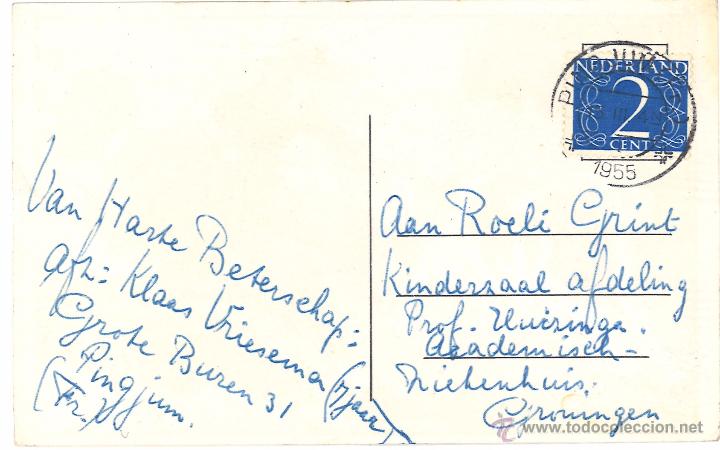 Van Harte Beterschap:
Afz: Klaas Vriesema
Grote Buren 31
Pingjum.
(Fr.)
NEDERLAND
2
CENT
1955
Aan Roeli Grint
Kinderzaal afdeling
Prof. Huizinga.
Academisch-
Ziekenhuis.
Groningen
© todocoleccion
www.todocoleccion.net